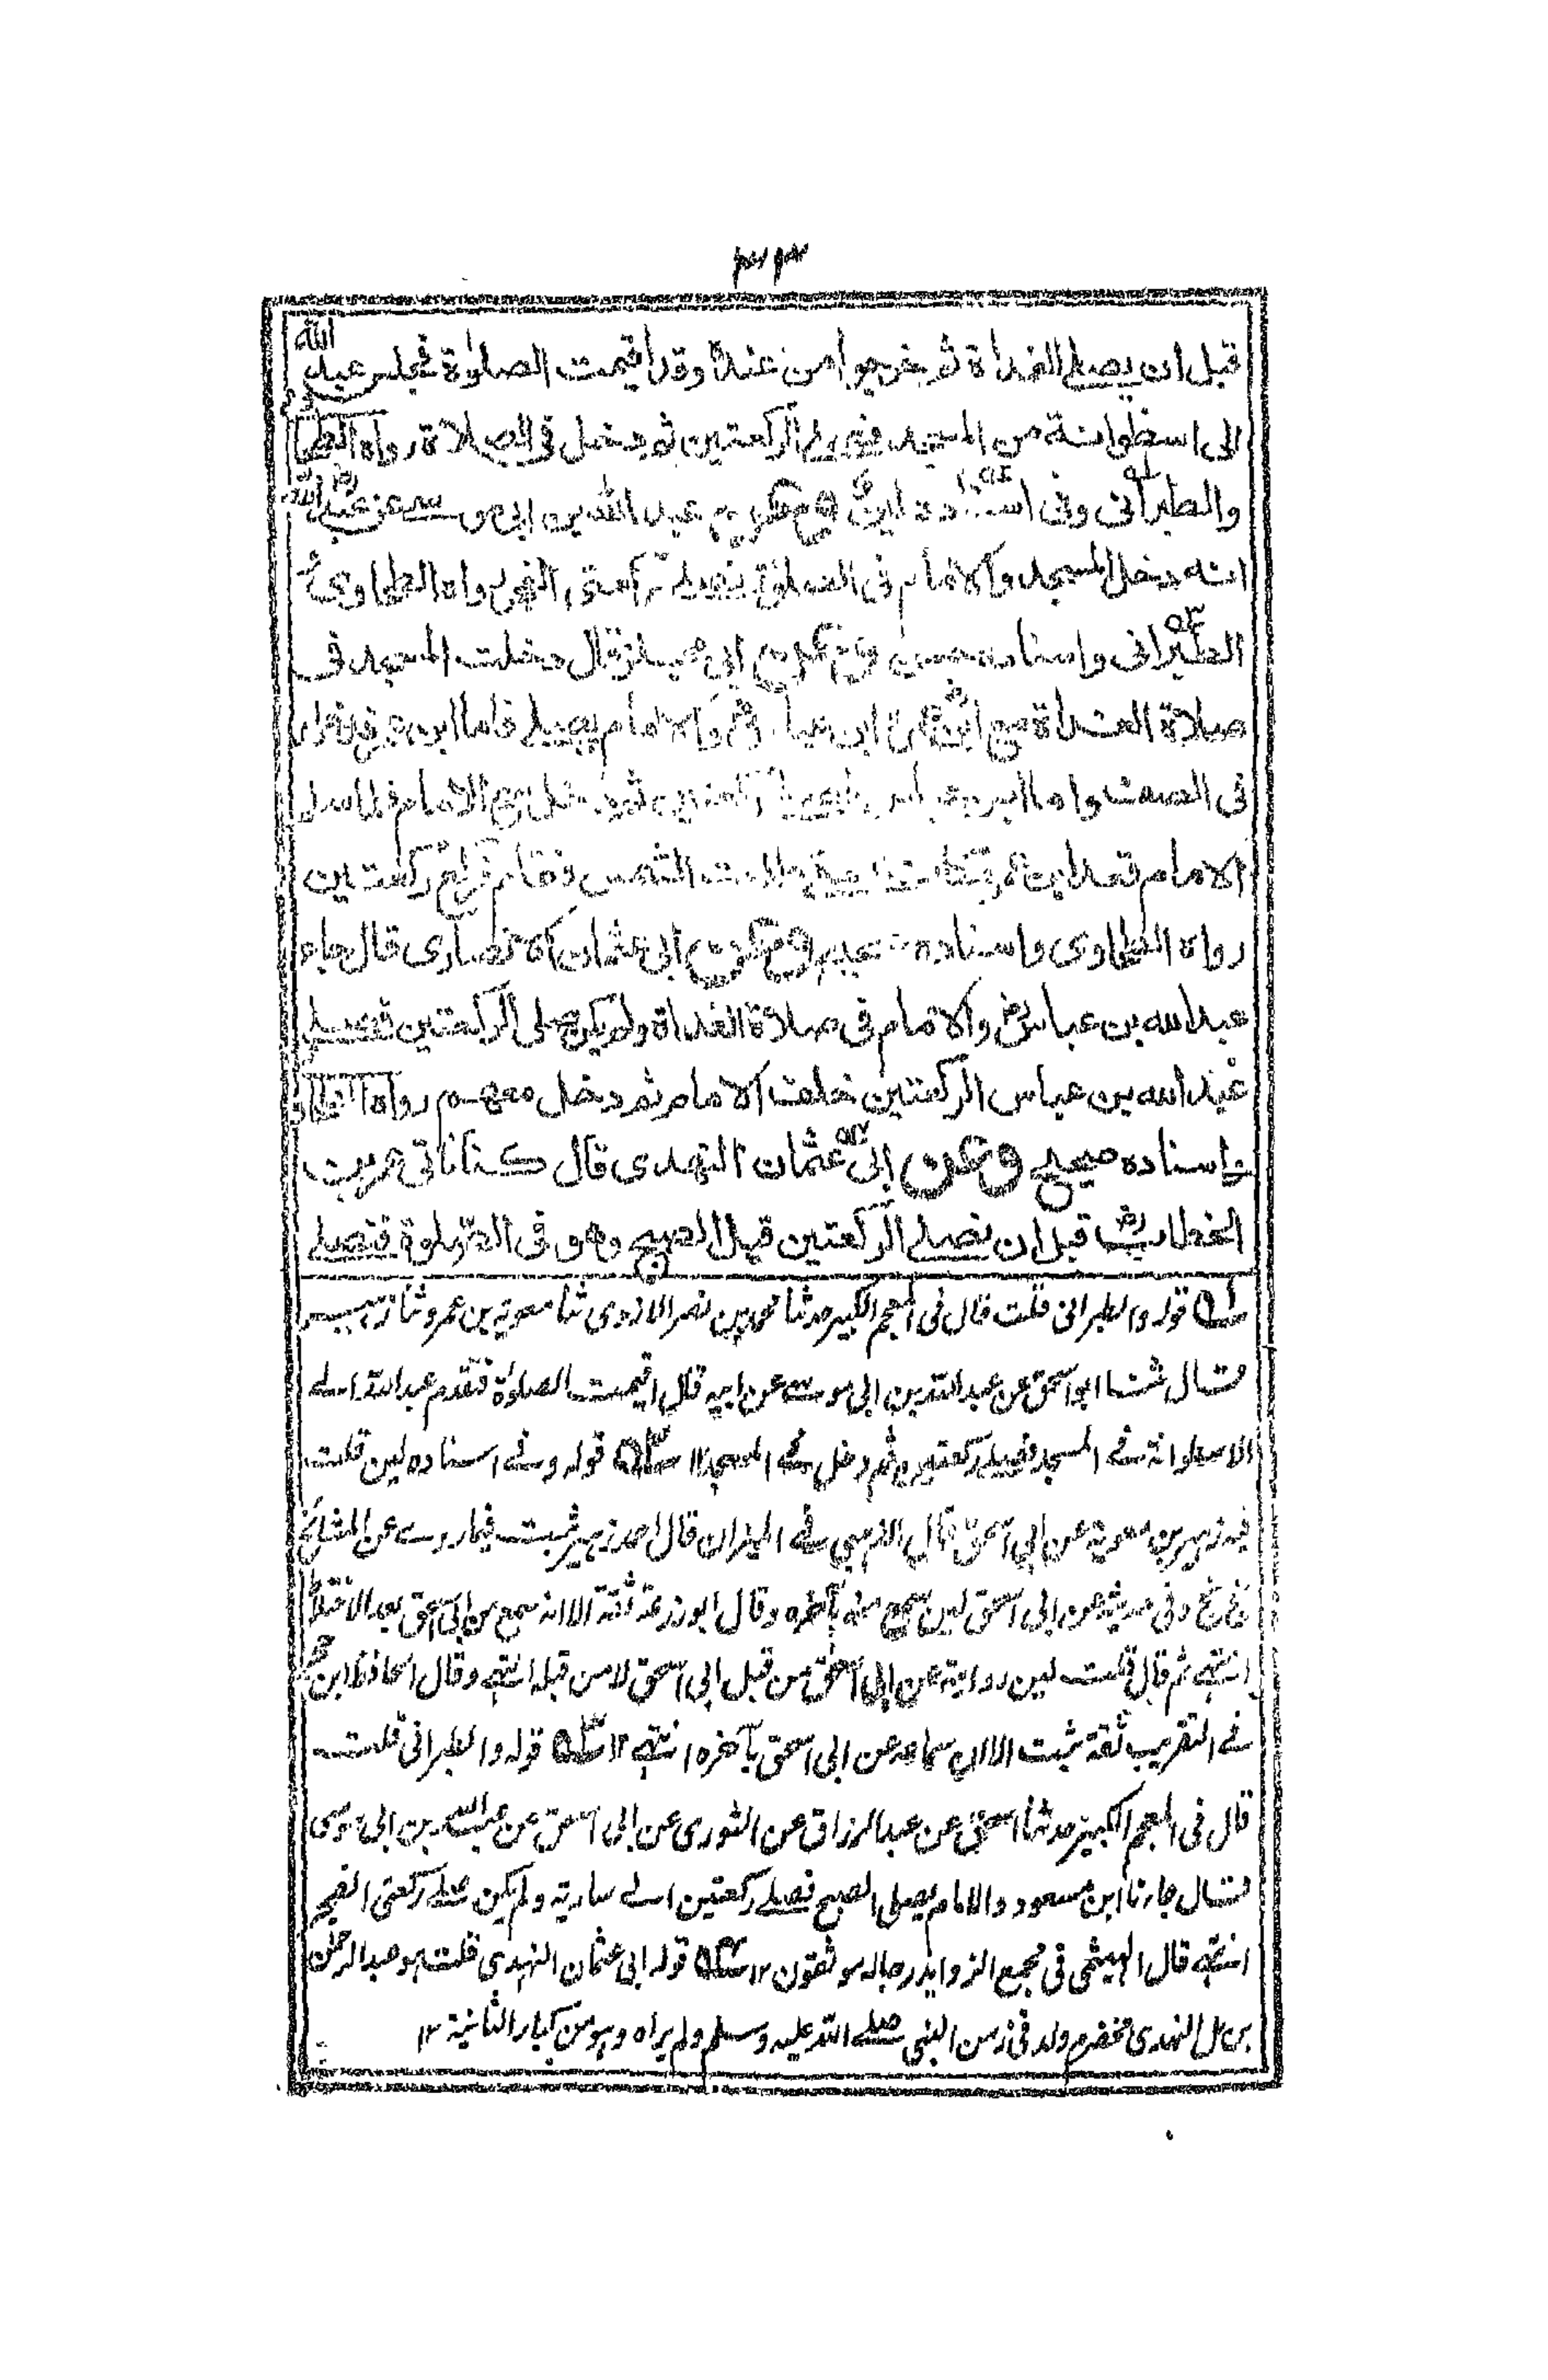 قبل ان يصلى الغداة ثم خرجوا من عنده وقد اقيمت الصلوٰة فجلس عبد الله
الى اسطوانة من المسجد فصلى الركعتين ثم دخل فى الصلاة رواه الطحاوى
والطبرانى وفى اسناده لين وعن عبد الله بن ابى موسى عن عبد الله
انه دخل المسجد والامام فى الصلوٰة فصلى ركعتى الفجر رواه الطحاوى
الطبرانى واسناده حسن وعن ابى مجلز قال دخلت المسجد فى
صلاة الغداة مع ابن عمر وابن عباس والامام يصلى فاما ابن عمر فدخل
فى الصف واما ابن عباس فصلى ركعتين ثم دخل مع الامام فلما سلم
الامام قعد ابن عمر مكانه حتى طلعت الشمس فقام فركع ركعتين
رواه الطحاوى واسناده صحيح وعن ابى عثمان الانصارى قال جاء
عبد الله بن عباس رض والامام فى صلاة الغداة ولم يكن صلى الركعتين فصلى
عبد الله بن عباس الركعتين خلف الامام ثم دخل معهم رواه الطحاوى
واسناده صحيح وعن ابى عثمان النهدى قال كنا ناتى عمر بن
الخطاب رض قبل ان نصلى الركعتين قبل الصبح وهو فى الصلوة فنصلى
لـه قوله والطبرانى قلت قال فى المعجم الكبير حدثنا محمد بن نصر الازدى ثنا معوية بن عمرو ثنا زهير
قال ثنا ابو اسحق عن عبد الله بن ابى موسى عن ابيه قال اقيمت الصلوٰة فتقدم عبد الله الى
الاسطوانة فى المسجد فصلى ركعتين ثم دخل فى المسجد ١٢ ٢ه قوله وفى اسناده لين قلت
فيه زهير بن معوية عن ابى اسحق قال الذهبى فى الميزان قال احمد زهير ثبت فيما روى عن المشائخ
بخ بخ وفى حديثه عن ابى اسحق لين سمع منه بآخره وقال ابو زرعة ثقة الا انه سمع من ابى اسحق بعد الاختلاط
انتهى ثم قال قلت لين روايته عن ابى اسحق من قبل ابى اسحق لا من قبله انتهى وقال الحافظ ابن حجر
فى التقريب ثقة ثبت الا ان سماعه عن ابى اسحق بآخره انتهى ١٢ ٣ه قوله والطبرانى قلت
قال فى المعجم الكبير حدثنا اسحق عن عبد الرزاق عن الثورى عن ابى اسحق عن عبد الله بن ابى موسى
قال جاءنا ابن مسعود والامام يصلى الصبح فصلى ركعتين الى سارية ولم يكن صلى ركعتى الفجر
انتهى قال الهيثمى فى مجمع الزوايد رجاله موثقون ١٢ ٤ه قوله ابى عثمان النهدى قلت هو عبد الرحمٰن
بن مل النهدى مخضرم ولد فى زمن النبى صلى الله عليه وسلم ولم يراه وهو من كبار الثانية ١٢